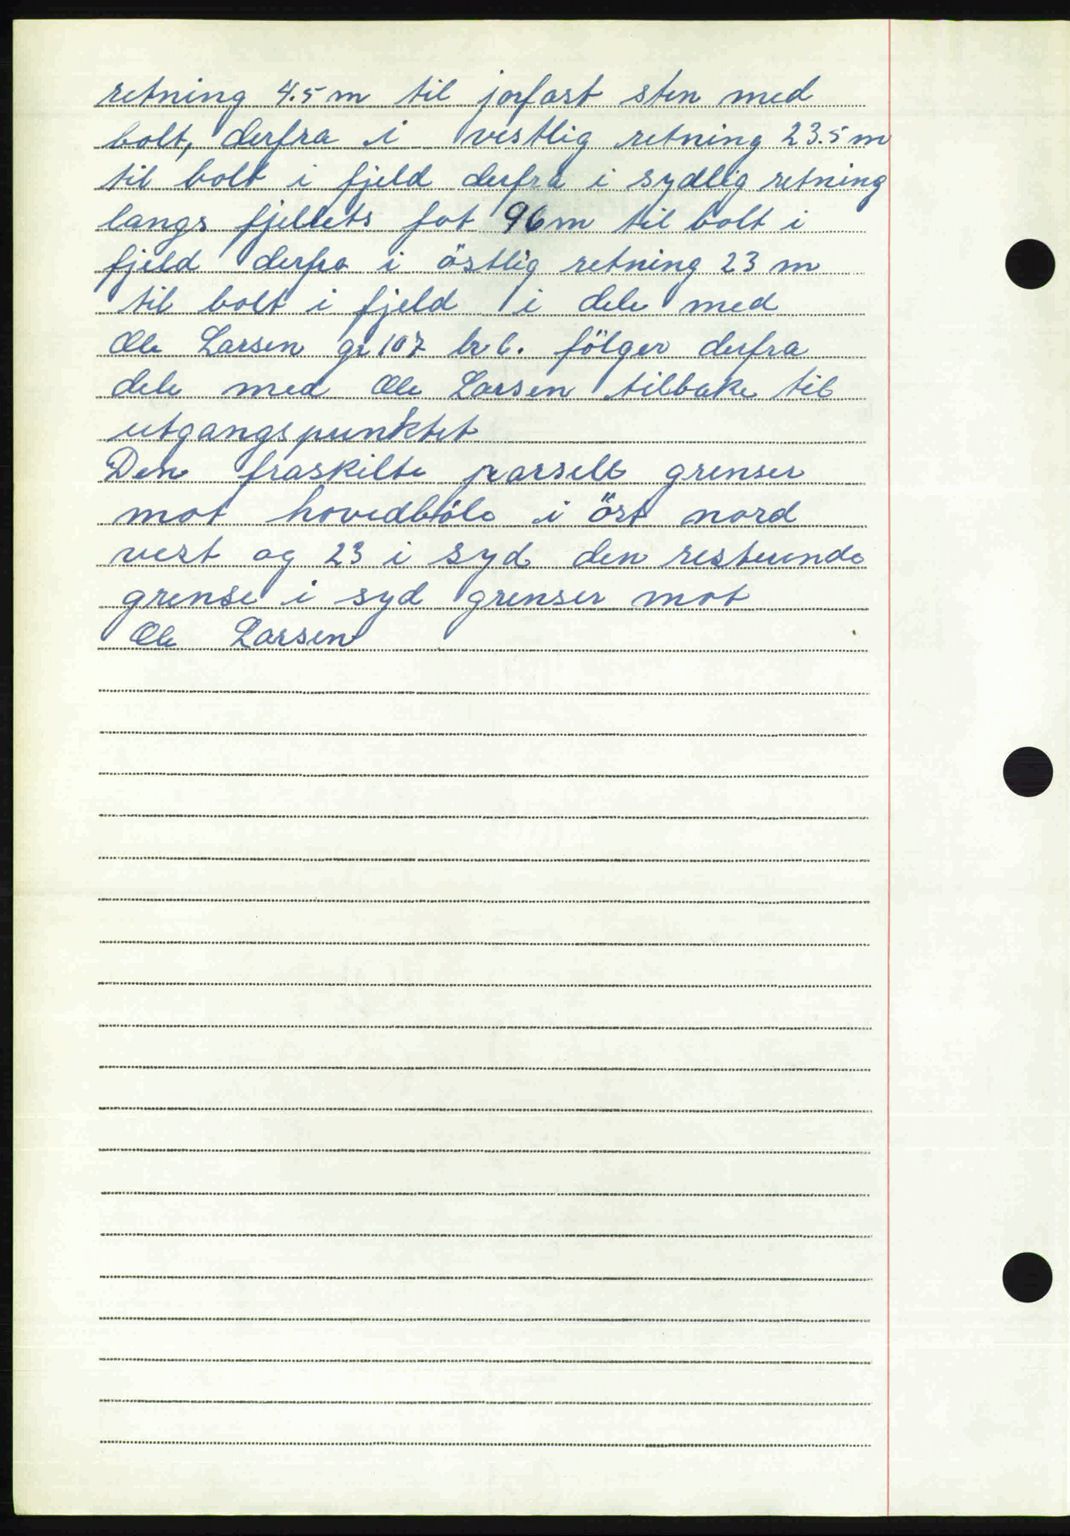 retning 4.5 m til jorfast sten med
bolt, derfra i vestlig retning 23.5 m
til bolt i fjeld derfra i sydlig retning
langs fjellets fot 96 m til bolt i
fjeld derfra i östlig retning 23 m
til bolt i fjeld i dele med
Ole Larsen gr 107 br 6. fölger derfra
dele med Ole Larsen tilbake til
utgangspunktet
Den fraskilte parsell grenser
mot hovedbölo i öst nord
vest og 23 i syd den resterende
grense i syd grenser mot
Ole Larsen